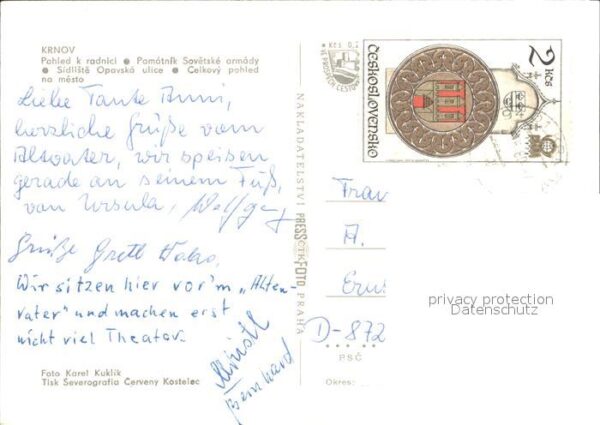 KRNOV
Pohled k radnici ● Památník Sovětské armády
● Sídliště Opavská ulice ● Celkový pohled
na město
Liebe Tante Anni,
herzliche Grüße vom
Altvater, wir speisen
gerade an seinem Fuß,
von Ursula, Wolfgang
Grüße Gretl
Wir sitzen hier vor'm "Alten-
vater" und machen erst
nicht viel Theater.
Christl
Bernhard
Foto Karel Kuklík
Tisk Severografia Červený Kostelec
NAKLADATELSTVÍ PRESSFOTO PRAHA
ČTK
Kčs 0,
2 Kčs
Československo
Frau
A.
D-872
PSČ
Okres:
privacy protection
Datenschutz